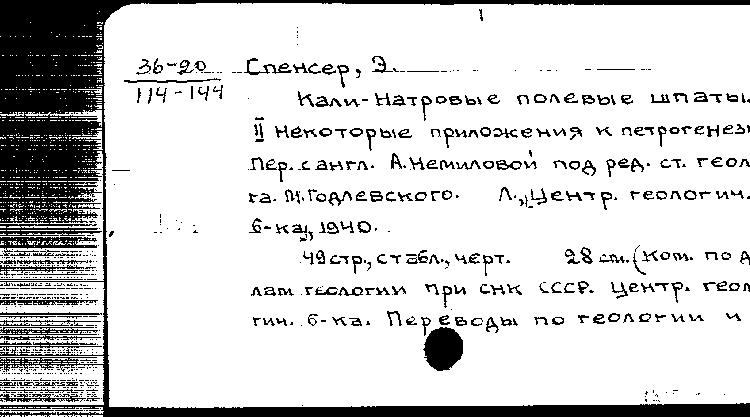 36-20 Спенсер, Э.
114-144
Кали-натровые полевые шпаты.
II Некоторые приложения к петрогенез
Пер. с англ. А. Немиловой под ред. ст. геол
га. М. Годлевского. Л., "Центр. геологич.
б-ка", 1940.
49 стр., с табл., черт. 28 см. (Ком. по д
лам геологии при СНК СССР. Центр. геол
гич. б-ка. Переводы по геологии и